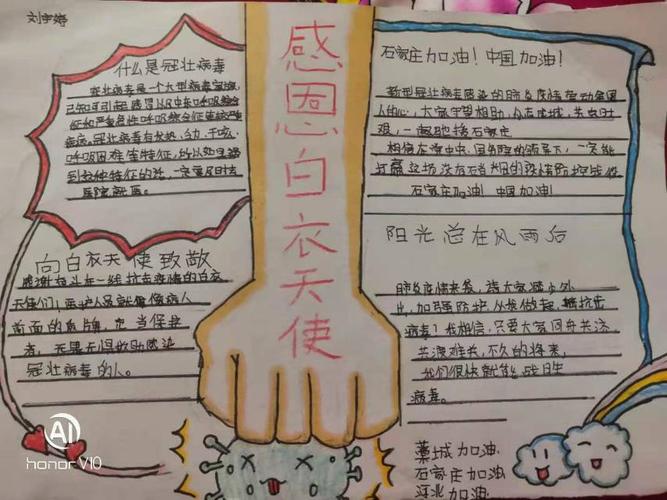 刘宇婷
什么是冠壮病毒
冠壮病毒是一个大型病毒家族,
已知可引起感冒以及中东呼吸综合
征和严重急性呼吸综合征等较严重
疾病。冠壮病毒有发热、乏力、干咳、
呼吸困难等特征,所以如果遇
到这种特征的话,一定要及时去
医院就医。
向白衣天使致敬
感谢奋斗在一线抗击疫情的白衣
天使们,医护人员就像像病人
前面的盾牌,充当保护
者,无畏无惧救助感染
冠壮病毒的人。
感恩白衣天使
石家庄加油!中国加油!
新型冠壮病毒感染的肺炎疫情牵动全国
人的心,大家守望相助、众志成城,共克时
艰,一起驰援石家庄
相信在党中央、国务院的领导下,一定能
打赢这场没有硝烟的疫情防控战役
石家庄加油!中国加油!
阳光总在风雨后
肺炎疫情来袭,请大家减少外
出,加强防护,从我做起,抵抗击
病毒!我相信,只要大家同舟共济,
共渡难关,不久的将来,
我们很快就能战胜
病毒。
藁城加油
石家庄加油
河北加油
AI
honor V10